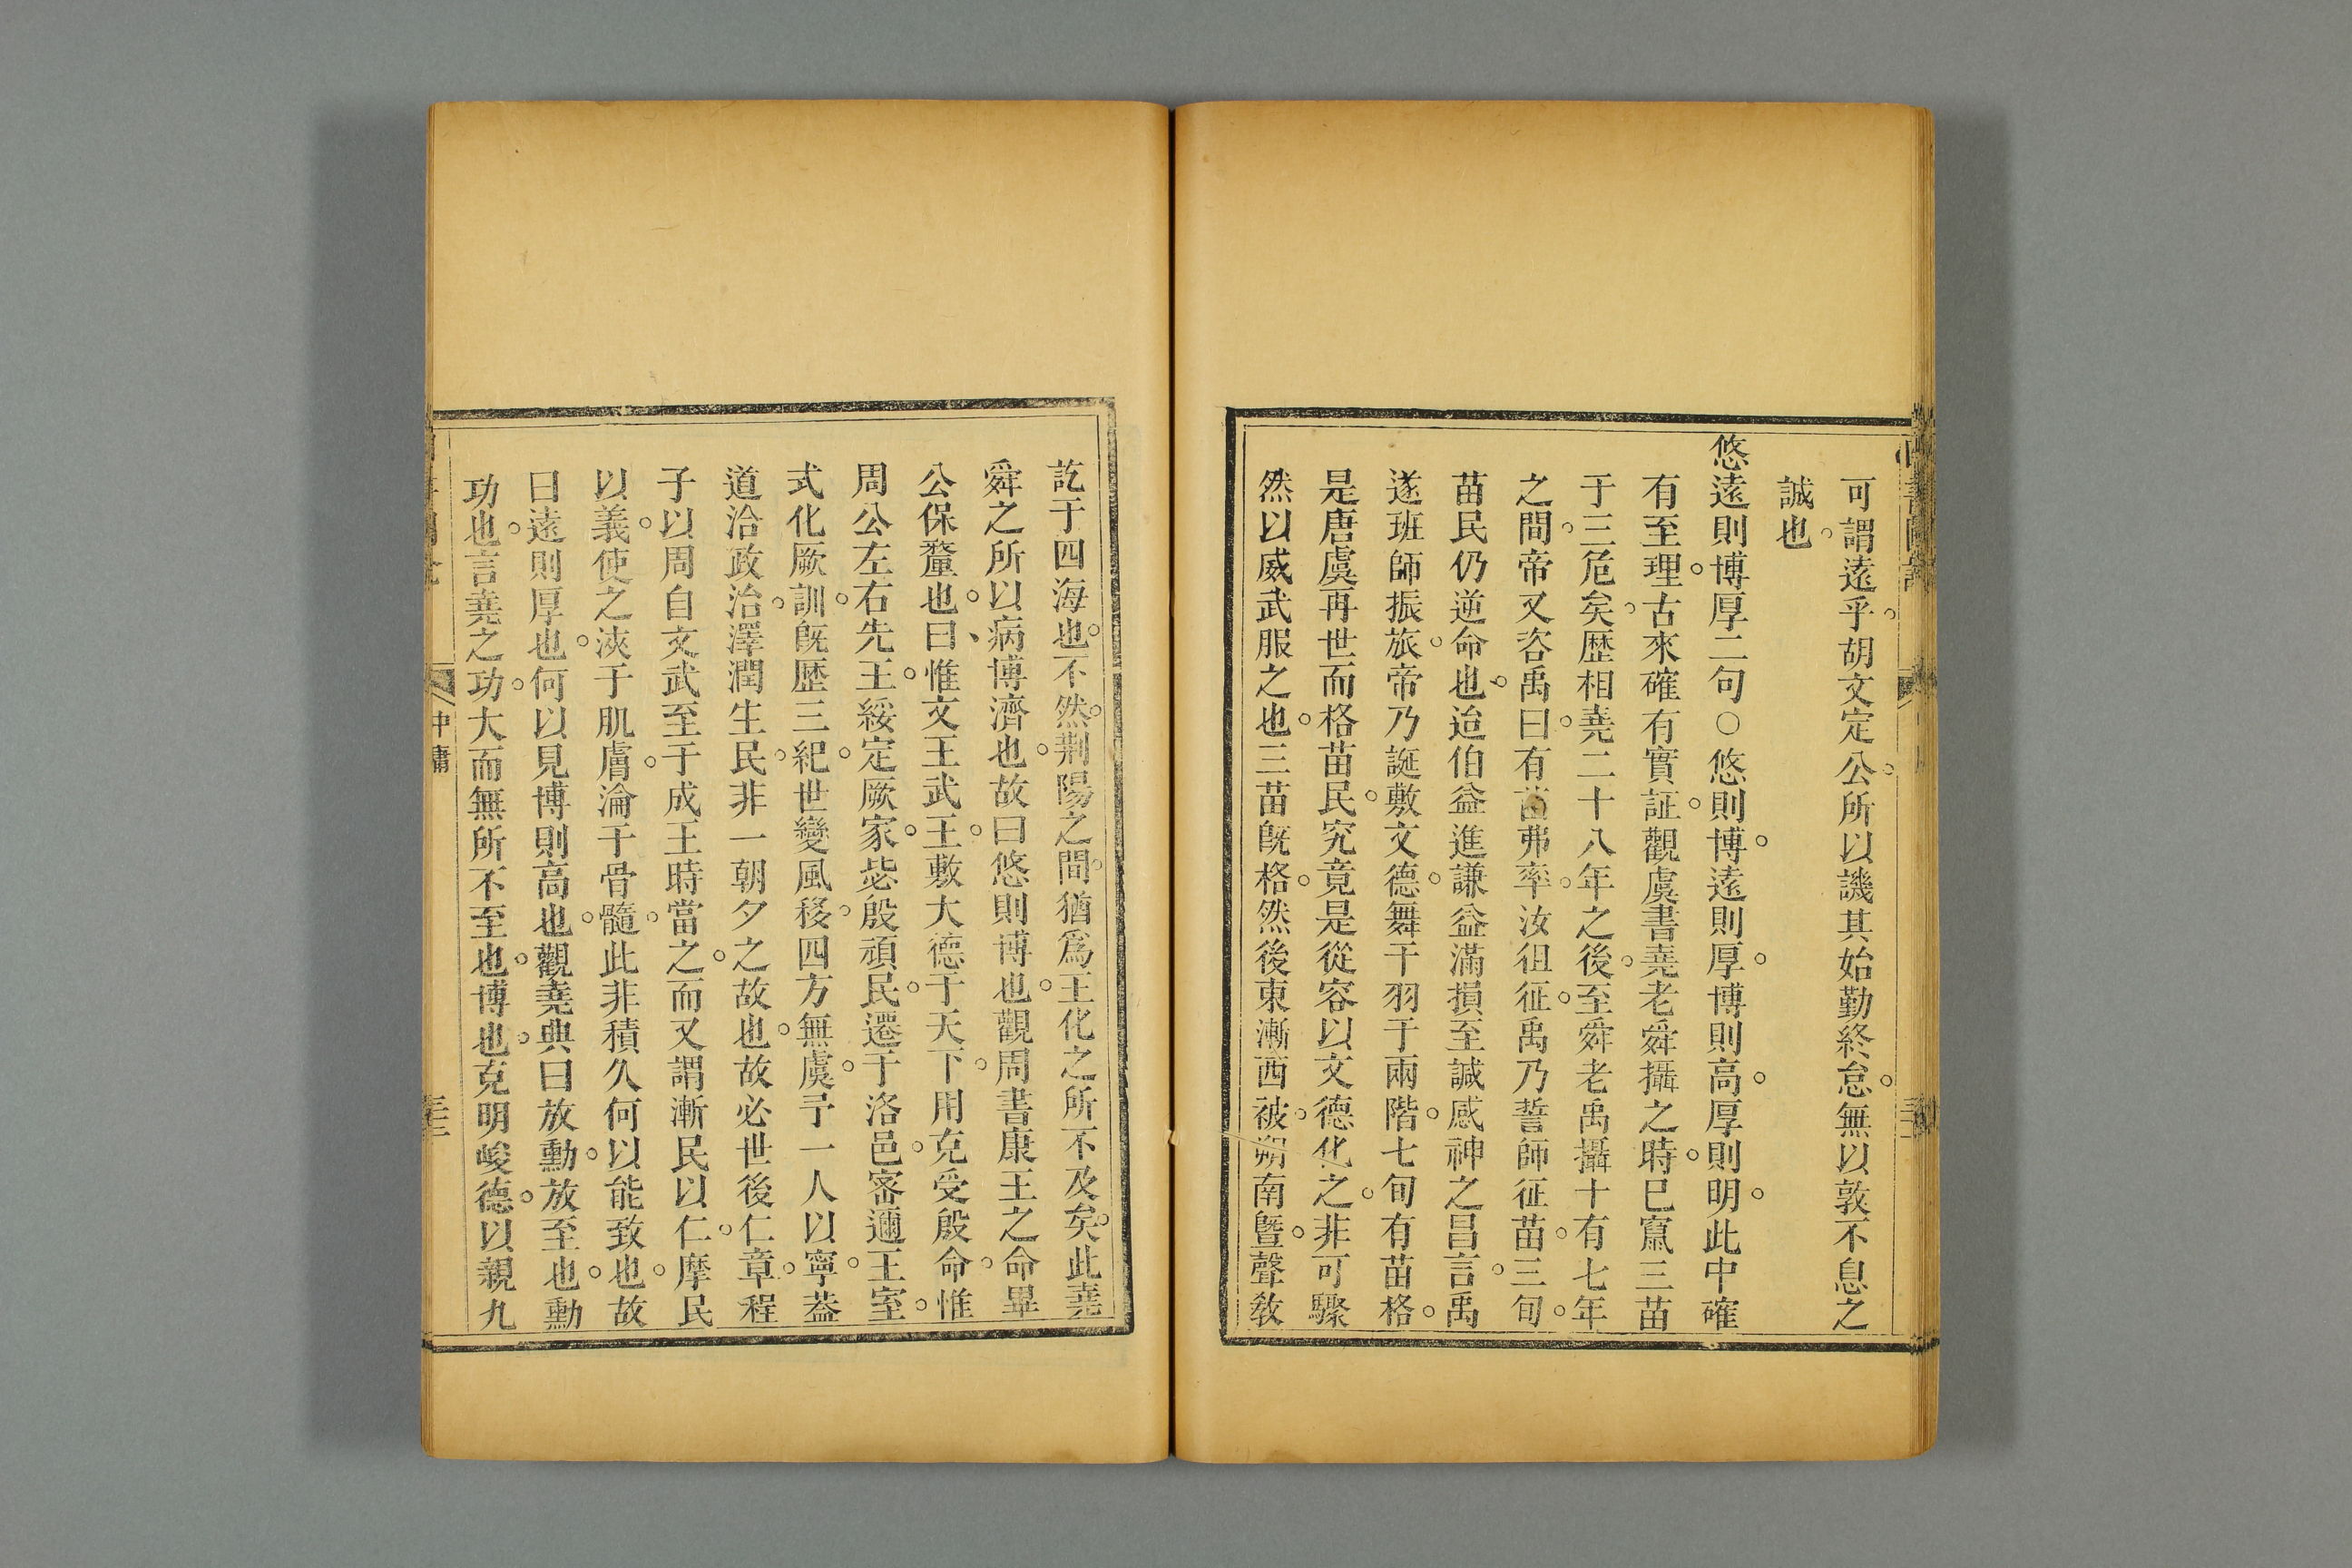 可謂遠乎胡文定公所以譏其始勤終怠無以敦不息之
誠也
悠遠則博厚二句○悠則博遠則厚博則高厚則明此中確
有至理古來確有實証觀虞書堯老舜攝之時已竄三苗
于三危矣歷相堯二十八年之後至舜老禹攝十有七年
之間帝又咨禹曰有苗弗率汝徂征禹乃誓師征苗三旬
苗民仍逆命也迨伯益進謙益滿損至諴感神之昌言禹
遂班師振旅帝乃誕敷文德舞干羽于兩階七旬有苗格
是唐虞再世而格苗民究竟是從容以文德化之非可驟
然以威武服之也三苗旣格然後東漸西被朔南曁聲敎
訖于四海也不然荆陽之間猶爲王化之所不及矣此堯
舜之所以病博濟也故曰悠則博也觀周書康王之命畢
公保釐也曰惟文王武王敷大德于天下用克受殷命惟
周公左右先王綏定厥家毖殷頑民遷于洛邑密邇王室
式化厥訓旣歷三紀世變風移四方無虞予一人以寧葢
道洽政治澤潤生民非一朝夕之故也故必世後仁章程
子以周自文武至于成王時當之而又謂漸民以仁摩民
以義使之浹于肌膚淪于骨髓此非積久何以能致也故
曰遠則厚也何以見博則高也觀堯典曰放勳放至也勳
功也言堯之功大而無所不至也博也克明峻德以親九
中庸